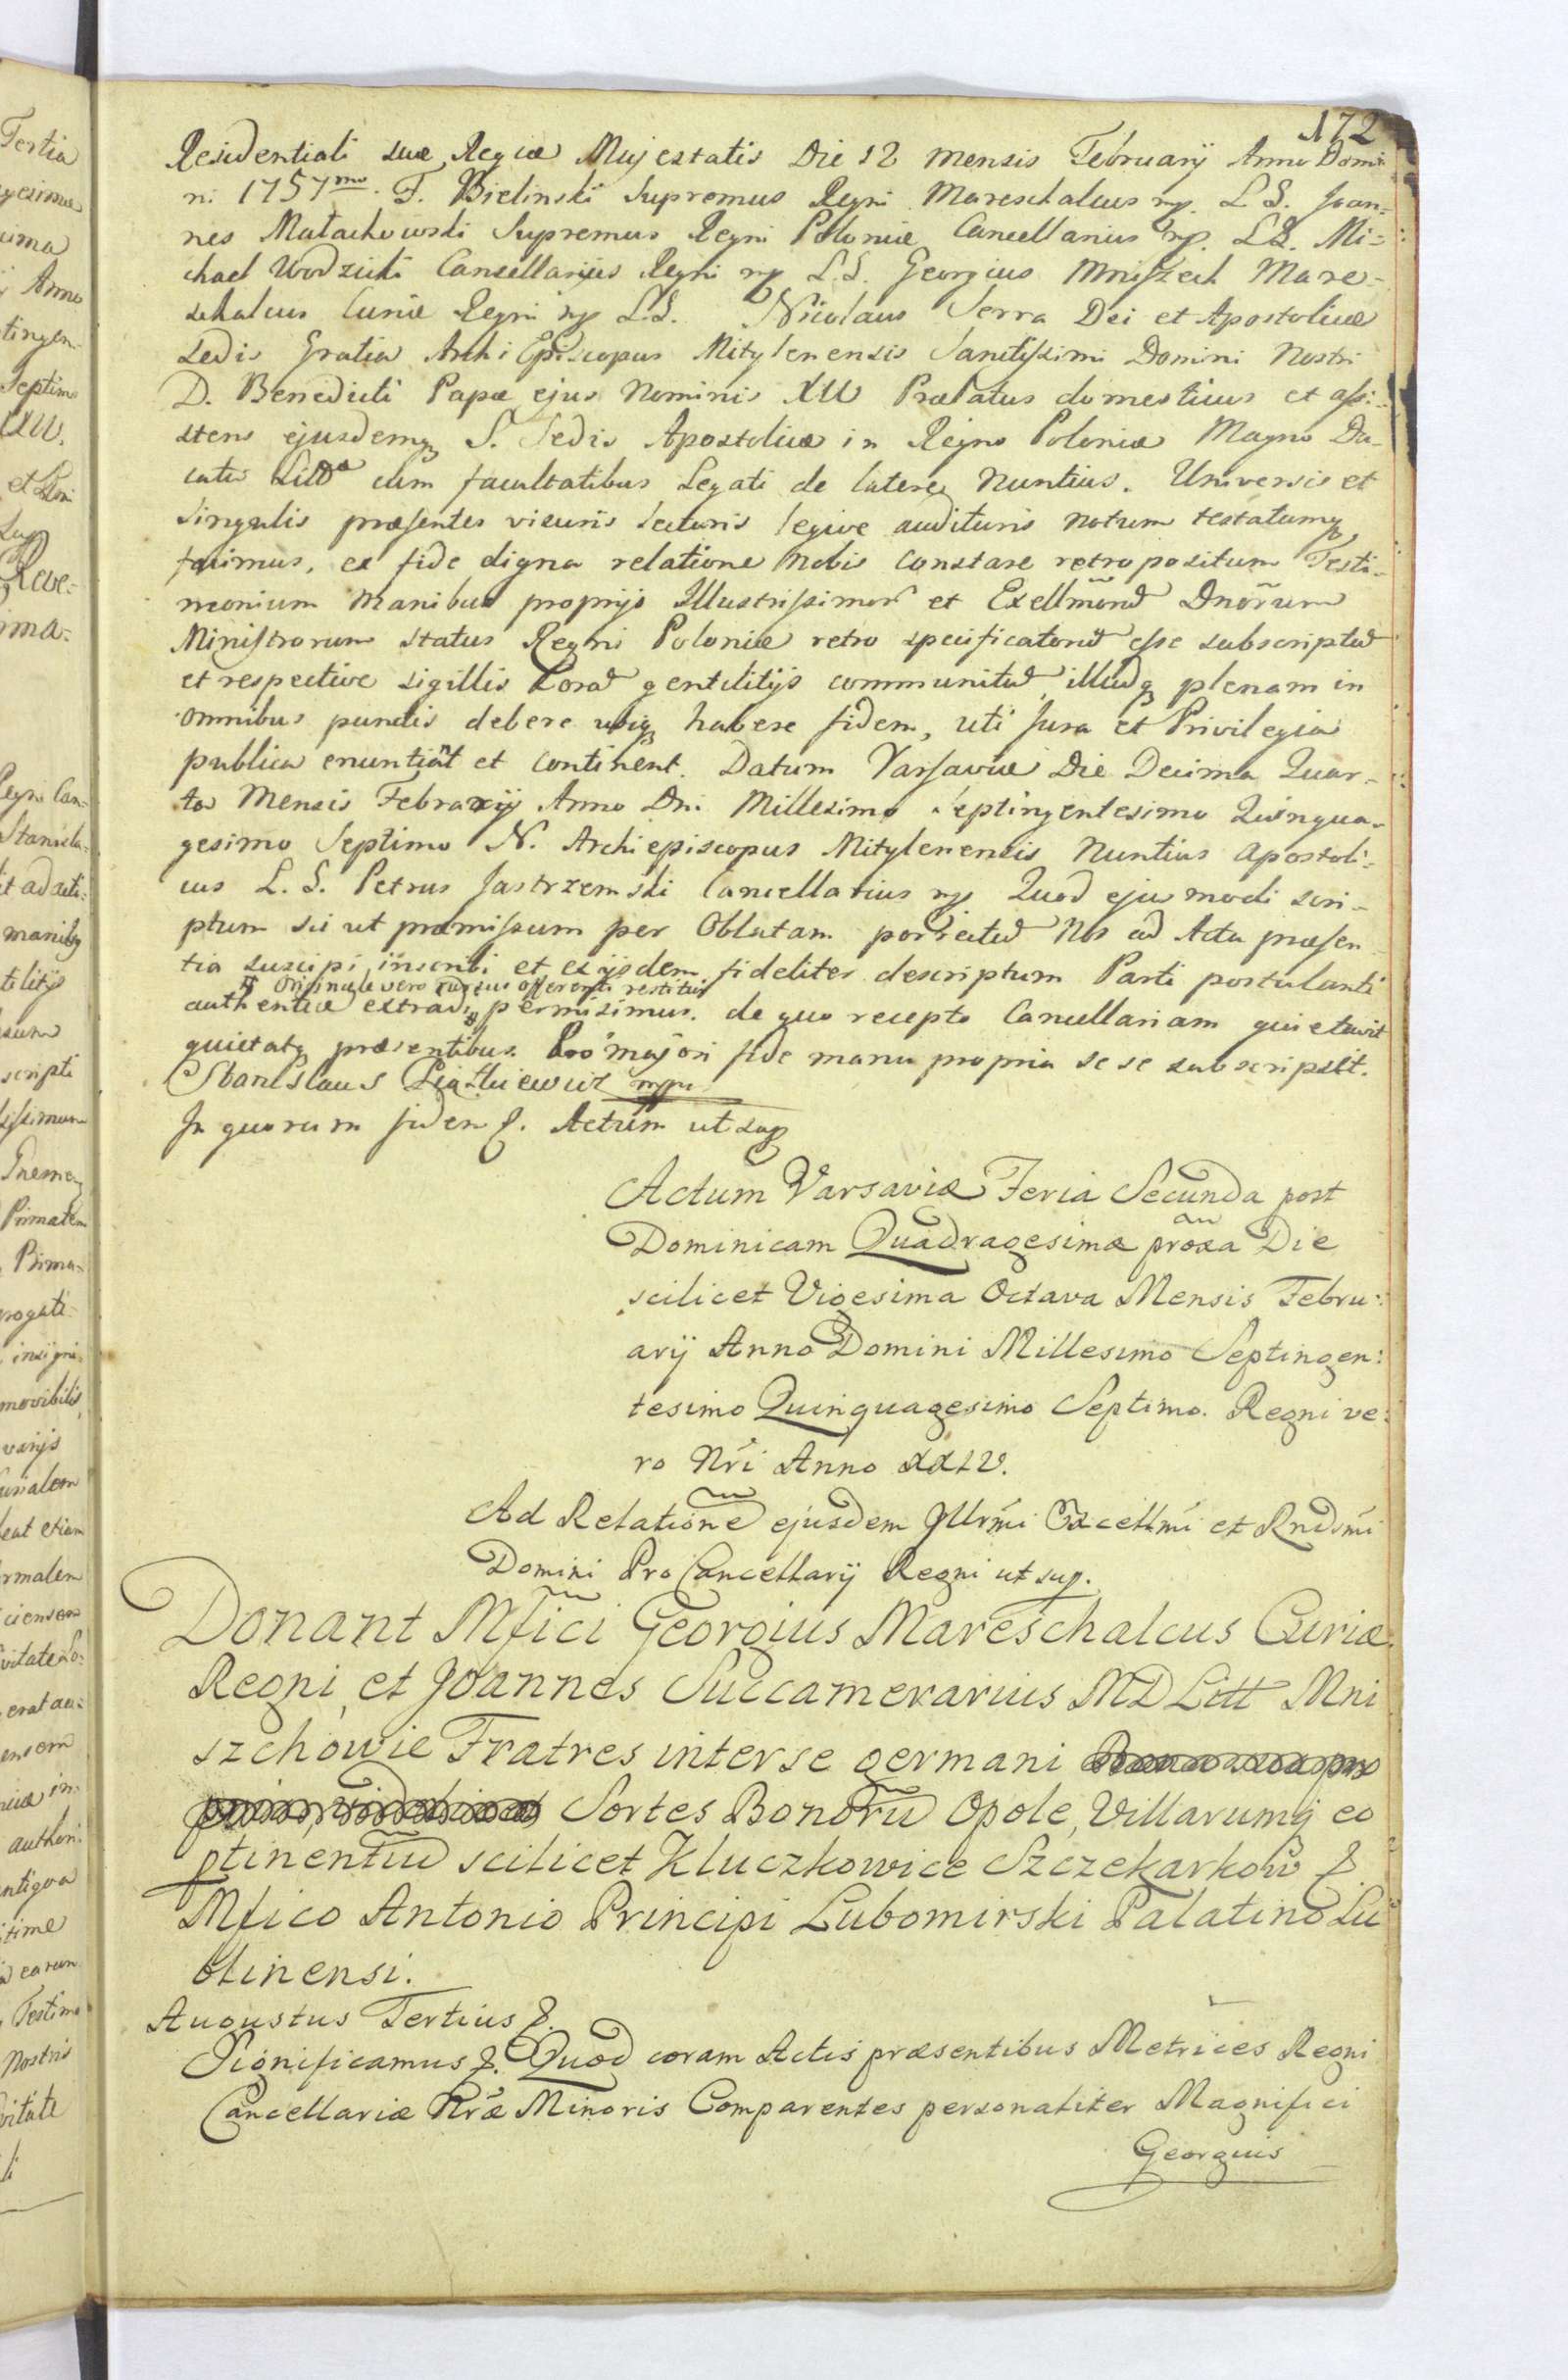 172
Residentiali suæ Regiæ Majestatis Die 12 mensis Februarij Anno Domi
ni 1757mo. F. Bielinski Supremus Regni Mareschalcus mp. L S. Joan=
nes Małachowski Supremus Regni Poloniæ Cancellarius mp. LS. Mi=
chael Wodzicki Cancellarijus Regni mp L.S. Georgius Mniszech Mare=
schalcus Curiæ Regni mp L.S. Nicolaus Serra Dei et Apostolicæ
Sedis Gratia Archi Episcopus Mitylenensis Sanctissimi Domini Nostri
D. Benedicti Papæ ejus Nominis XIV Prælatus domesticus et assi=
stens ejusdemq S. Sedis Apostolicæ in Regno Poloniæ Magno Du=
catu Littæ cum facultatibus Legati de latere Nuntius. Universis et
Singulis præsentes visuris lecturis legive audituris notum testatumq
facimus, ex fide digna relatione Nobis constare retropositum Testi=
monium manibus proprijs Illustrissimor et Exellmoru Dnõrum
Ministrorum status Regni Poloniæ retro specificatoru esse subscriptu
et respective sigillis Eoru gentilitijs communitu, illudq plenam in
omnibus punctis debere ubiq habere fidem, uti Jura et Privilegia
publica enuntiãt et continent. Datum Varsaviæ Die Decima Quar=
ta Mensis Febrarij Anno Dni Millesimo Septingentesimo Quinqua=
gesimo Septimo N. Archiepiscopus Mitylenensis Nuntius Apostoli=
cus L. S. Petrus Jastrzemski Cancellarius mp Quod ejusmodi scri=
ptum sic ut præmissum per Oblatam porrectu Nos ad Acta præsen=
tia suscipi, inscribi et ex ijsdem fideliter descriptum Parti postulanti
# Originale vero rursus offerenti restitui
authentice extradi # permisimus. de quo recepto Cancellariam quietavit
quietatq præsentibus. Pro majori fide manu propria se se subscripsit.
Stanislaus mpr
In quorum fidem &. Actum ut sup
Actum Varsaviæ Feria Secunda post
Dominicam Quadragesimæ proxa Die
scilicet Vigesima Octava Mensis Febru:
arij Anno Domini Millesimo Septingen:
tesimo Quinquagesimo Septimo. Regni ve:
ro Nri Anno XXIV.
Ad Relatione ejusdem Illrmi Excellmi et Rndsmi
Domini Pro Cancellarij Regni ut sup.
Donant Mfici Georgius Mareschalcus Curiæ
Regni et Joannes Succamerarius MD Litt Mni
szchowie Fratres inter se germani
Sortes Bonorũ Opole, Villarumq eo
ptinentiu scilicet Kluczkowice Szczekarkow &
Mfico Antonio Principi Lubomirski Palatino Lu
blinensi.
Augustus Tertius &.
Significamus &. Quod coram Actis præsentibus Metrices Regni
Cancellariæ Nræ Minoris Comparentes personaliter Magnifici
Georgius